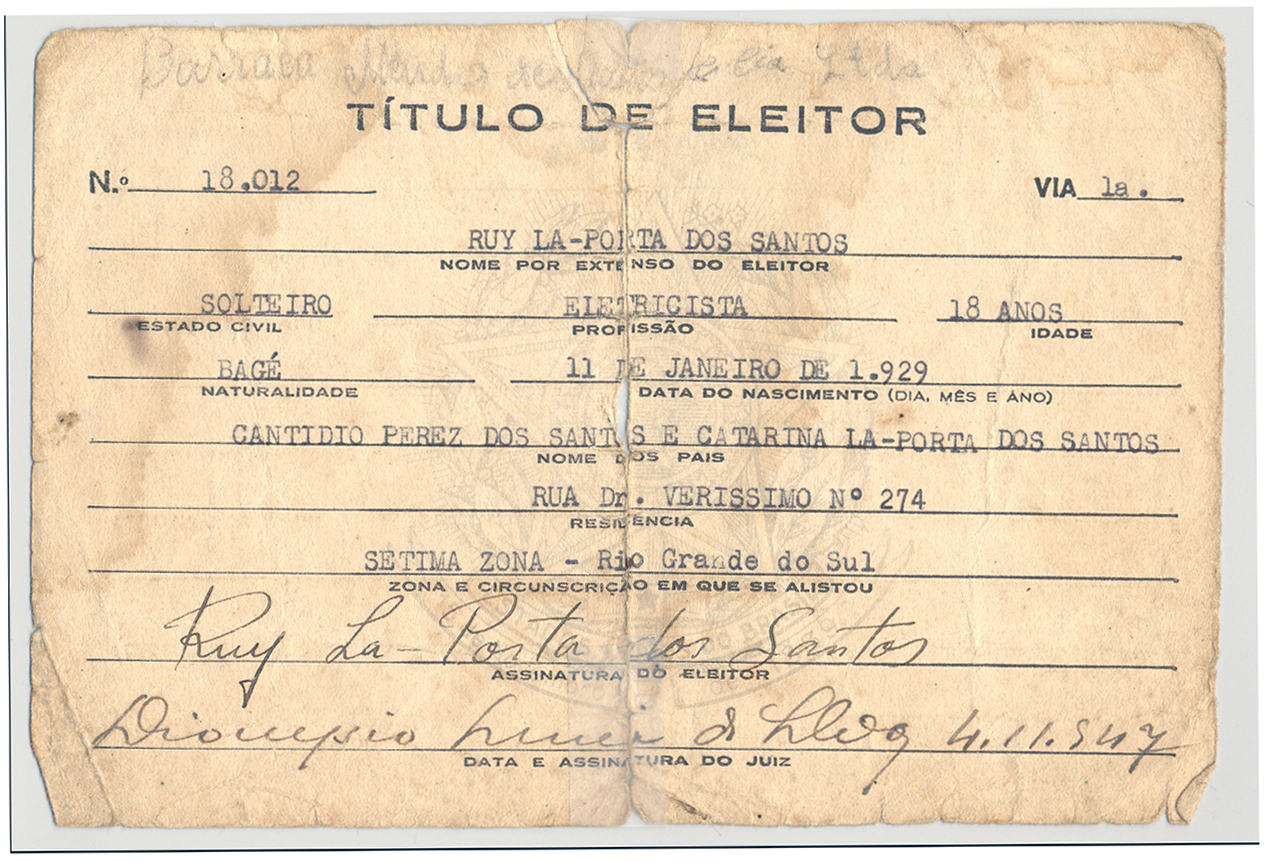 Barraca
Ltda
TÍTULO DE ELEITOR
N.º 18.012 VIA 1a.
RUY LA-PORTA DOS SANTOS
NOME POR EXTENSO DO ELEITOR
SOLTEIRO ELETRICISTA 18 ANOS
ESTADO CIVIL PROFISSÃO IDADE
BAGÉ 11 DE JANEIRO DE 1.929
NATURALIDADE DATA DO NASCIMENTO (DIA, MÊS E ANO)
CANTIDIO PEREZ DOS SANTOS E CATARINA LA-PORTA DOS SANTOS
NOME DOS PAIS
RUA Dr. VERISSIMO Nº 274
RESIDENCIA
SETIMA ZONA - Rio Grande do Sul
ZONA E CIRCUNSCRIÇÃO EM QUE SE ALISTOU
Ruy La-Porta dos Santos
ASSINATURA DO ELEITOR
4.11.947
DATA E ASSINATURA DO JUIZ